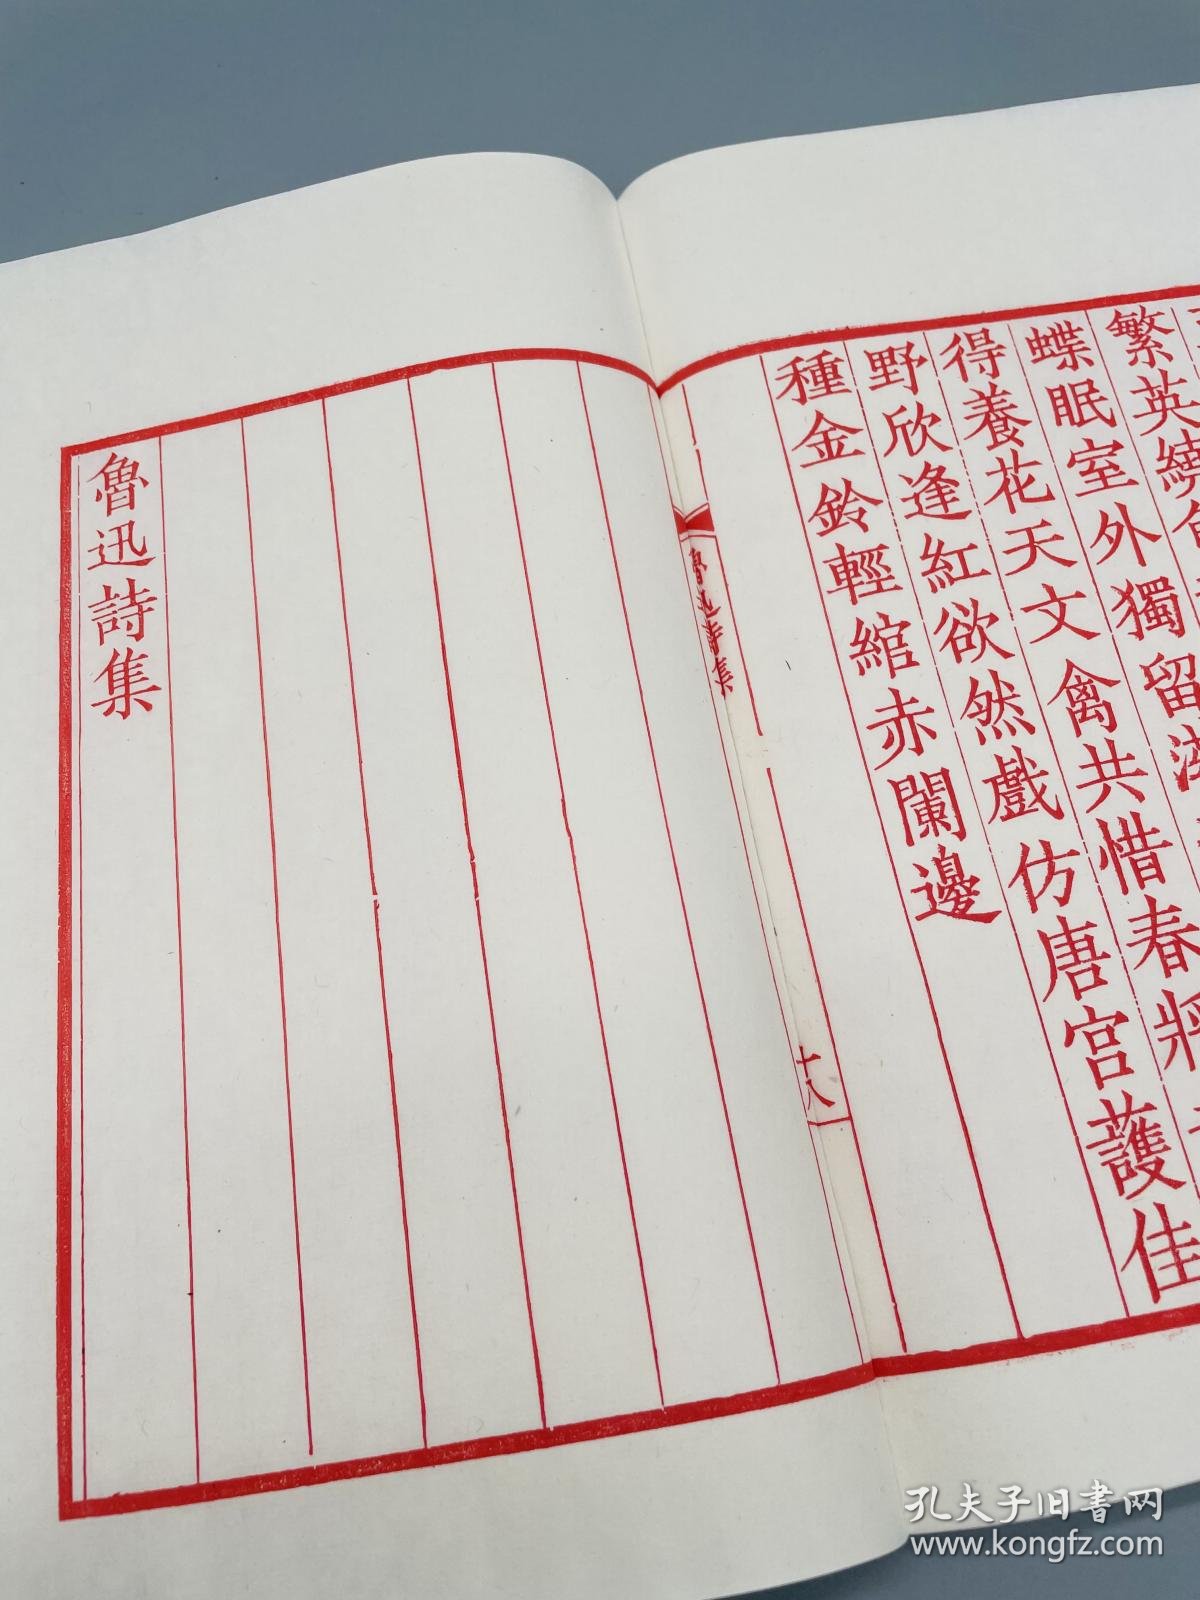 繁英繞
蝶眠室外獨留
得養花天文禽共惜春將
野欣逢紅欲然戲仿唐宮護佳
種金鈴輕綰赤闌邊
魯迅詩集
十八
魯迅詩集
孔夫子旧书网
www.kongfz.com